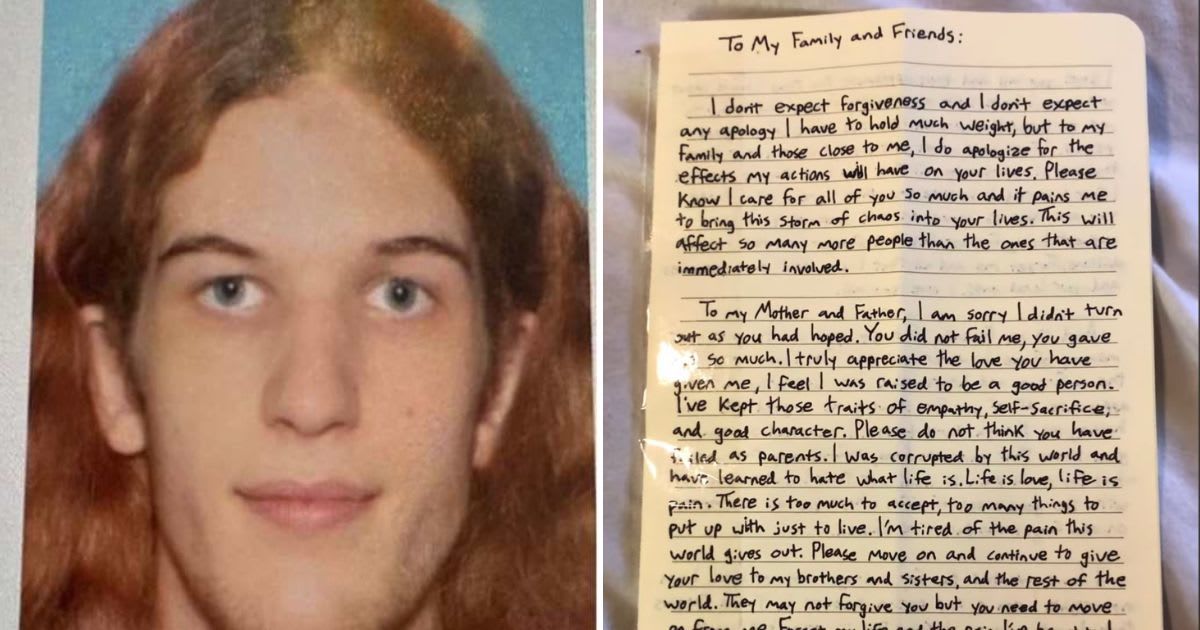 To My Family and Friends:
I don't expect forgiveness and I don't expect
any apology I have to hold much weight, but to my
family and those close to me, I do apologize for the
effects my actions will have on your lives. Please
know I care for all of you so much and it pains me
to bring this storm of chaos into your lives. This will
affect so many more people than the ones that are
immediately involved.
To my Mother and Father, I am sorry I didn't turn
out as you had hoped. You did not fail me, you gave
so much. I truly appreciate the love you have
given me, I feel I was raised to be a good person.
I've kept those traits of empathy, self-sacrifice,
and good character. Please do not think you have
failed as parents. I was corrupted by this world and
have learned to hate what life is. Life is love, life is
pain. There is too much to accept, too many things to
put up with just to live. I'm tired of the pain this
world gives out. Please move on and continue to give
your love to my brothers and sisters, and the rest of the
world. They may not forgive you but you need to move